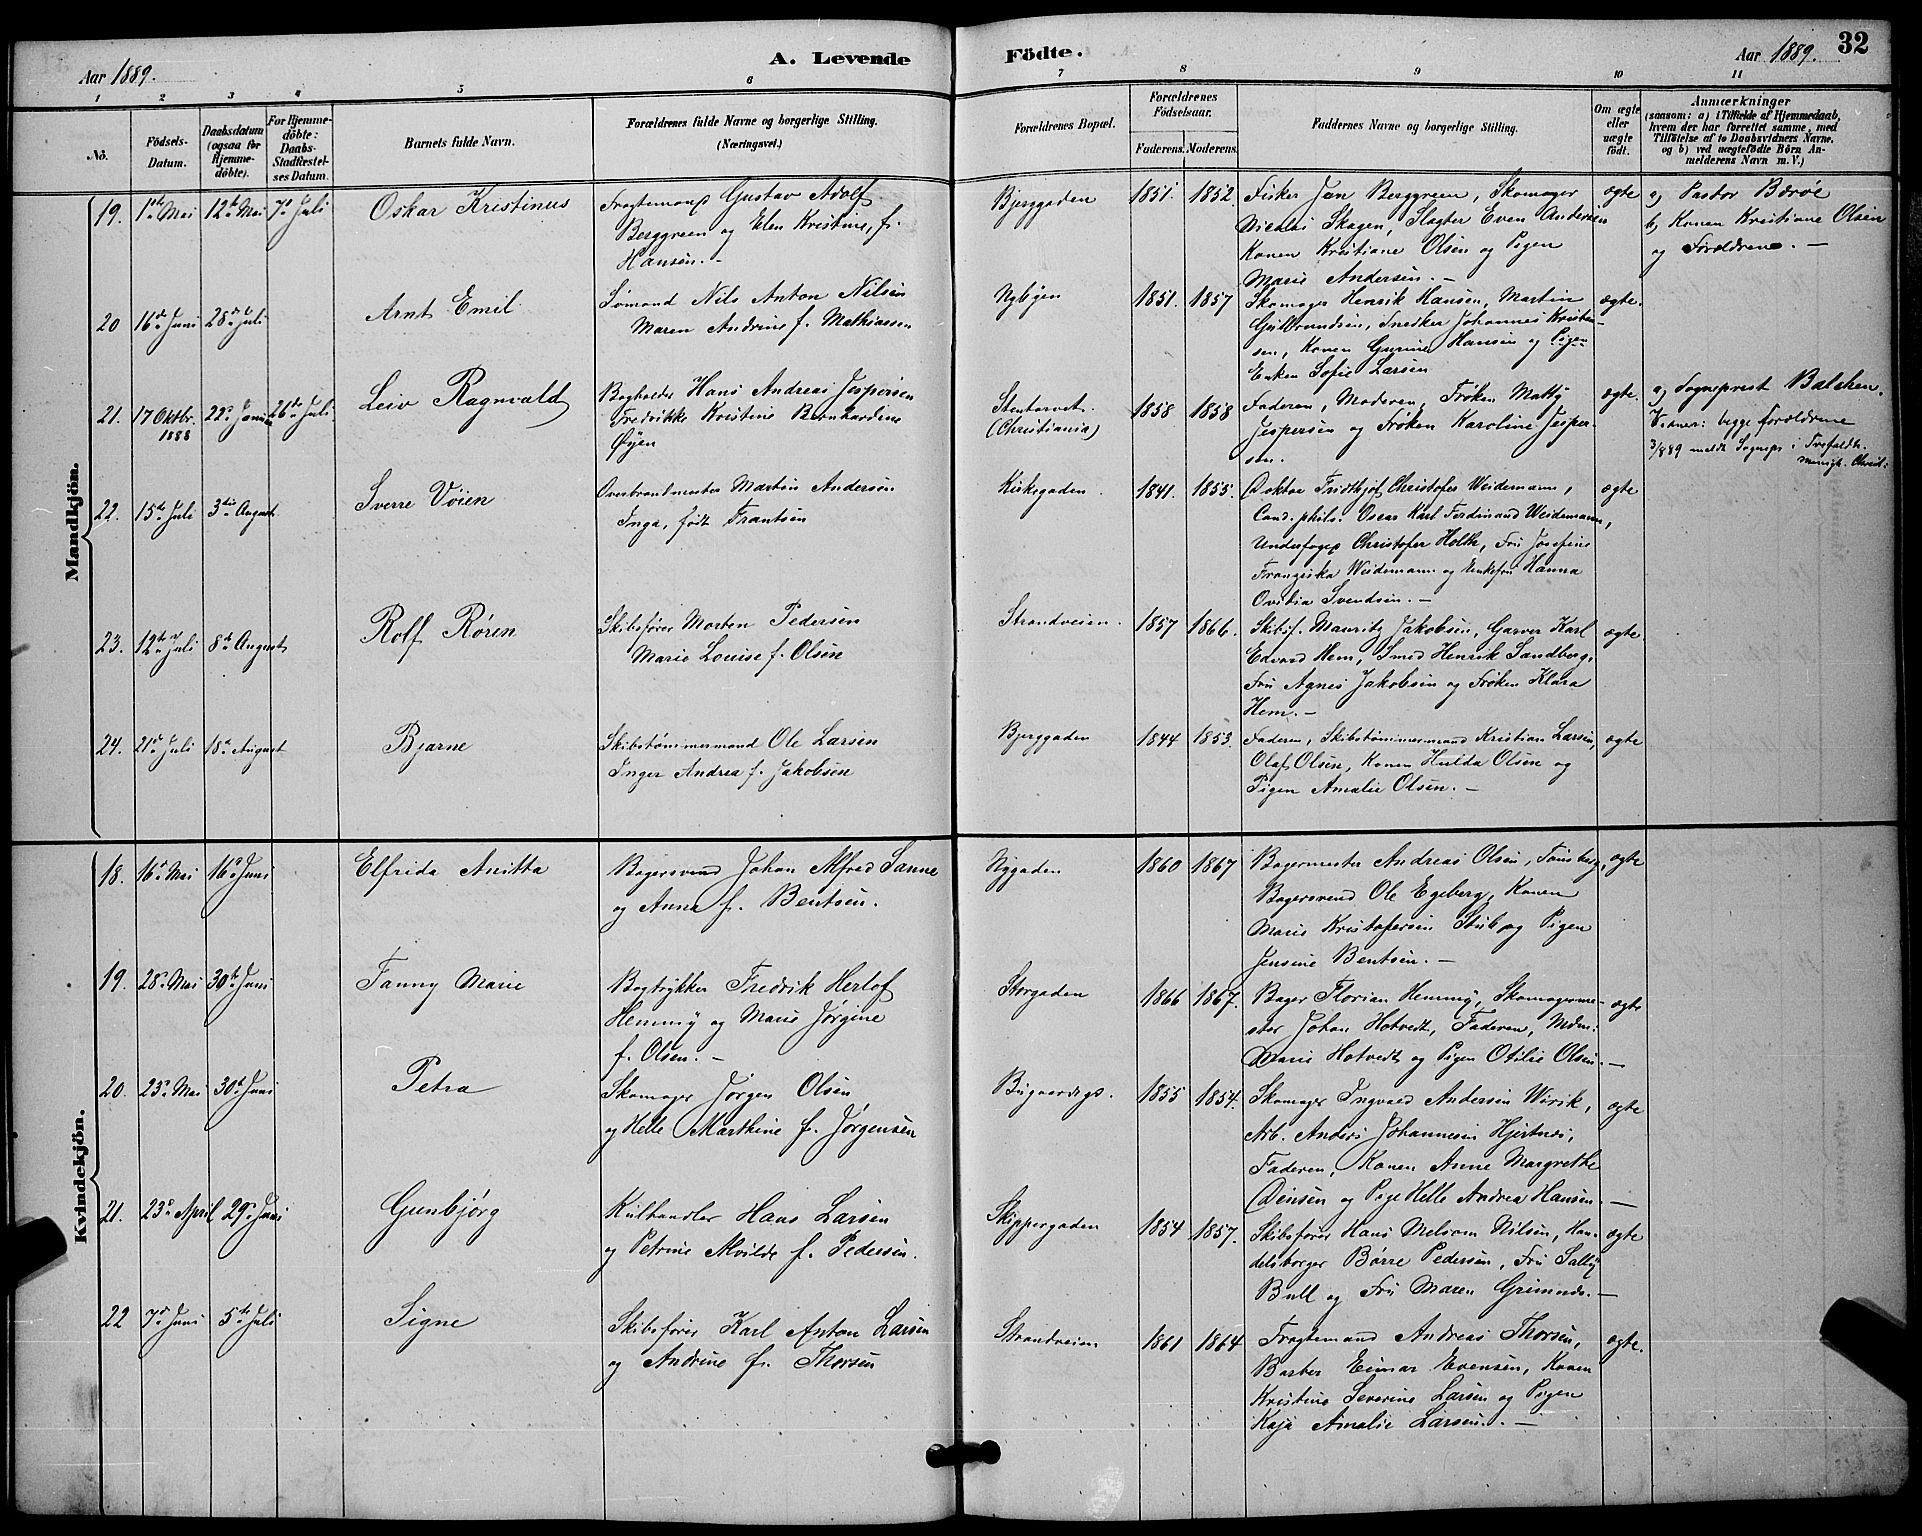 Aar 1889.
A. Levende
Födte.
Aar 1889.
32
1 2 3 4 5 6 7 8 9 10 11
No.
Födsels-
Datum.
Daabsdatum
(ogsaa for
Hjemme-
döbte).
For Hjemme-
döbte:
Daabs-
Stadfæstel-
ses Datum.
Barnets fulde Navn.
Forældrenes fulde Navne og borgerlige Stilling.
(Næringsvei.)
Forældrenes Bopæl.
Forældrenes
Födselsaar.
Faderens. Moderens.
Faddernes Navne og borgerlige Stilling.
Om ægte
eller
uægte
födt.
Anmærkninger
(saasom: a) i Tilfælde af Hjemmedaab,
hvem der har forrettet samme, med
Tilföielse af to Daabsvidners Navne,
og b) ved uægtefödte Börn An-
melderens Navn m. V.)
Mandkjön.
19. 1ste Mai 12te Mai 7de Juli
Oskar Kristinus
Fragtemand Gustav Adolf
Berggreen og Elen Kristine, f.
Hansen.-
Bjerggaden
1851. 1852.
Fisker Jan Berggreen, Skomager
Nicolai Skagen, Slagter Even Andersen
Konen Kristiane Olsen og Pigen
Marie Andersen.-
ægte
a) Pastor Børøe
b) Konen Kristiane Olsen
og Forældrene.-
20 16de Juni 28de Juli
Arnt Emil
Sømand Nils Anton Nilsen
Maren Andrine f. Mathiassen
Nybyen
1851. 1857
Skomager Henrik Hansen, Martin
Gulbrandsen, Snedker Johannes Kristen-
sen, Konen Gurine Hansen og Pigen
Enken Sofie Larsen
ægte.
21. 17 Oktbr. 1888 22de Juni 26de Juli
Leiv Ragnvald
Bogholder Hans Andreas Jespersen
Fredrikke Kristine Bernhardine
Øyen
Stentorvet.
(Christiania)
1858 1858
Faderen, Moderen, Frøken Matty
Jespersen og Frøken Karoline Jesper-
sen.
ægte.
a) Sogneprest Balchen.
Vidner: begge forældrene
3/889 meldt Sognepr. i Trefoldh.
menigh. Christ:
22. 15de Juli 3die August
Sverre Vöien
Overbrandmester Martin Andersen
Inga, født Frantsen
Kirkegaden.
1841. 1855.
Doktor Fridthjof Christofer Weidemann,
Cand. phils. Oscar Karl Ferdinand Weidemann,
Underfoged Christofer Holth, Fru Josefine
Frangiska Weidemann og Enkefru Hanna
Ovidia Svendsen.-
ægte
23. 12te Juli 8de August
Rolf Røren
Skibsfører Morten Pedersen
Marie Louise f. Olsen
Strandveien.
1857 1866.
Skibsf. Mauritz Jakobsen, Garver Karl
Edvard Hem, Smed Henrik Sandberg,
Fru Agnes Jakobsen og Frøken Klara
Hem.-
ægte
24. 21de Juli 18de August
Bjarne
Skibstømmermand Ole Larsen
Inger Andrea f. Jakobsen
Bjerggaden
1844 1853.
Faderen, Skibstømmermand Kristian Larsen,
Olaf Olsen, Konen Hulda Olsen og
Pigen Amalie Olsen.-
ægte
Kvindekjön.
18. 16de Mai 16de Juni
Elfrida Anitta
Bagersvend Johan Alfred Sanne
og Anna f. Bentsen.
Nygaden
1860 1867
Bagermester Andreas Olsen, Tønsberg,
Bagersvend Ole Egeberg, Konen
Marie Kristofersen Stub og Pigen
Jensine Bentsen.-
ægte
19. 28de Mai 30te Juni
Fanny Marie
Bogtrykker Fredrik Herlof
Hemmy og Marie Jørgine
f. Olsen.-
Storgaden
1866 1867.
Bager Florian Hemmy, Skomagerme-
ster Johan Hotvedt, Faderen, Mdm.
Marie Hotvedt og Pigen Otilie Olsen.-
ægte
20. 23de Mai 30te Juni
Petra
Skomager Jørgen Olsen
og Helle Marthine f. Jørgensen
Bugaardsgs.
1855 1854.
Skomager Ingvald Andersen Virik,
Arb. Anders Johannesen Hjertnes,
Faderen, Konen Anne Margrethe
Densen og Pige Helle Andrea Hansen.-
ægte
21. 23de April 29de Juni
Gunbjørg
Kulhandler Hans Larsen
og Petrine Alvilde f. Pedersen.
Skippergaden
1854 1857.
Skibsfører Hans Melsom Nilsen, Han-
delsborger Børre Pedersen, Fru Sally
Bull og Fru Maren Grimnds.-
ægte
22 7de Juni 5te Juli
Signe
Skibsfører Karl Anton Larsen
og Andrine f. Thorsen
Strandveien
1861 1864
Fragtemand Andreas Thorsen,
Barber Einar Evensen, Konen
Kristine Severine Larsen og Pigen
Kaja Amalie Larsen.-
ægte.